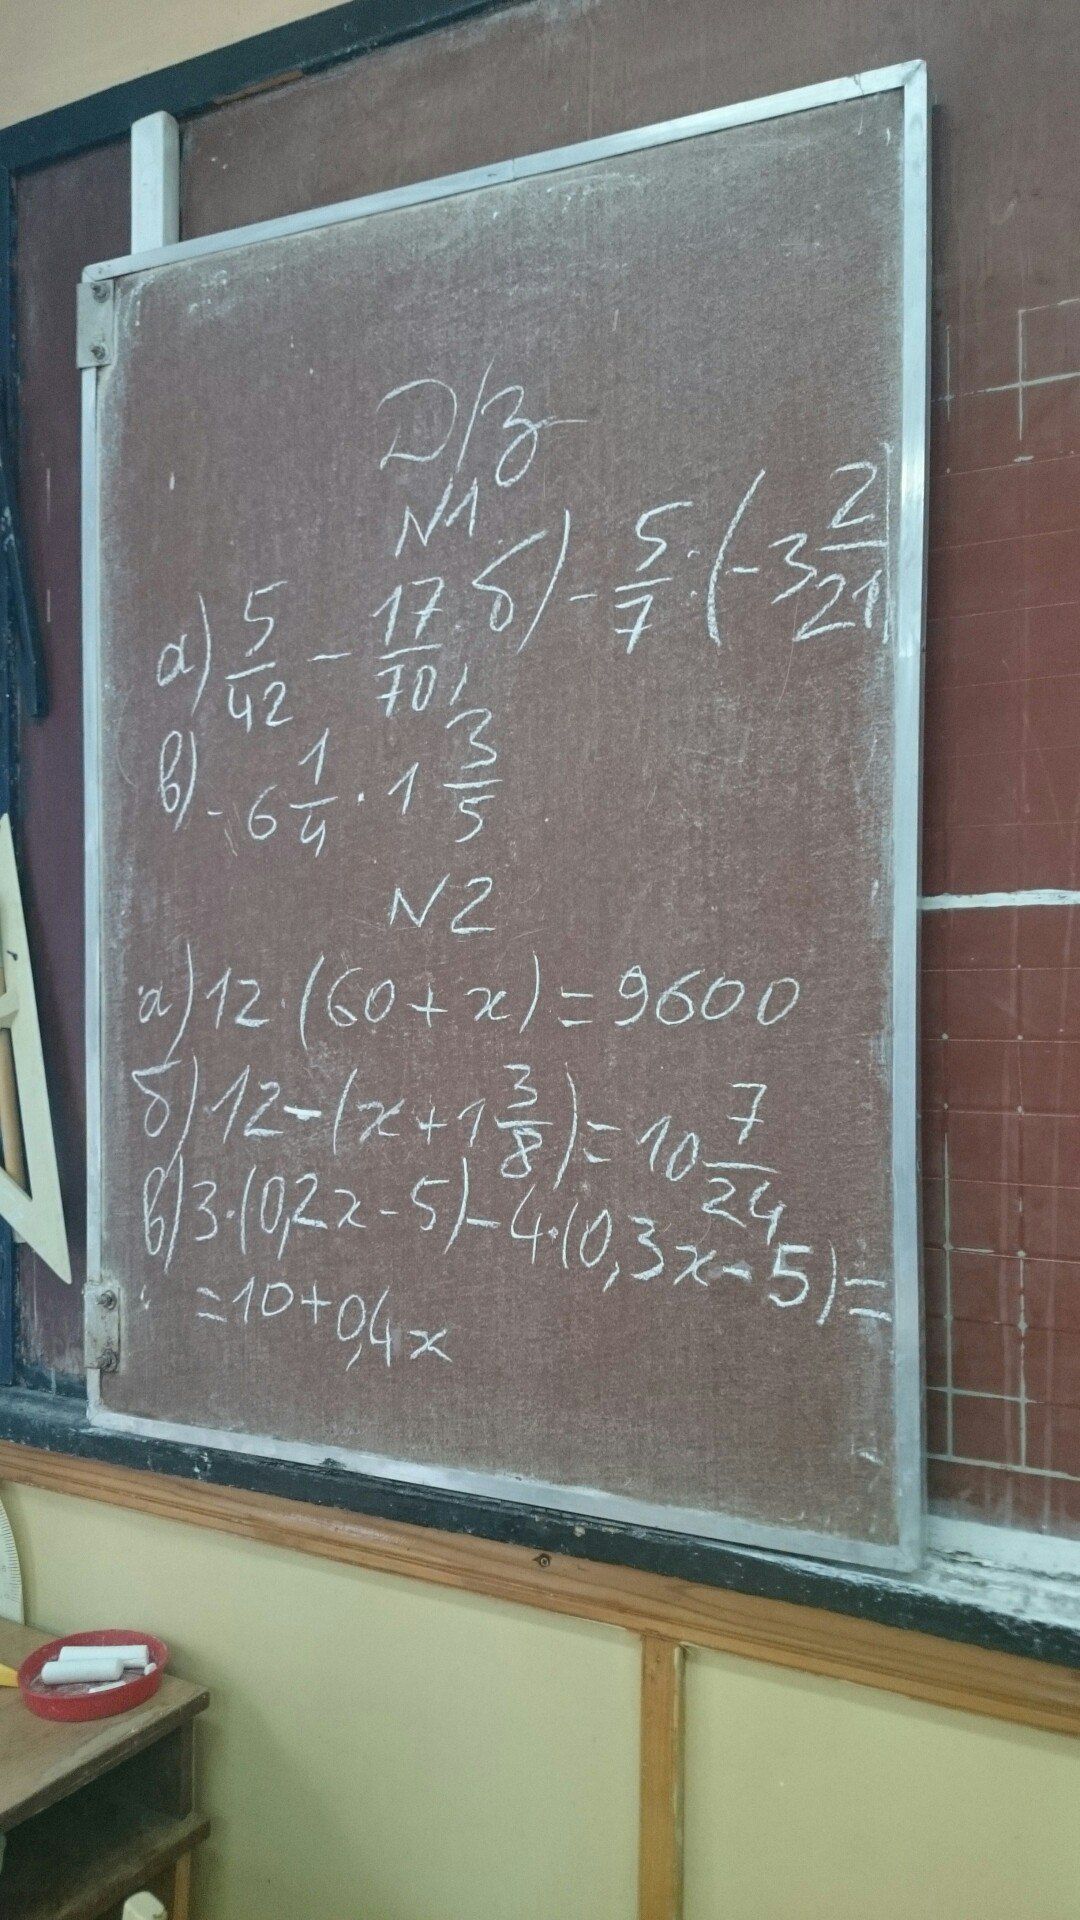 Д/з
N1
а) 5/42 - 17/70, б) - 5/7 : (-3 2/21
в) - 6 1/4 · 1 3/5
N2
а) 12·(60+x)=9600
б) 12-(x+1 3/8)=10 7/24
в) 3·(0,2x-5)-4·(0,3x-5)=
=10+0,4x